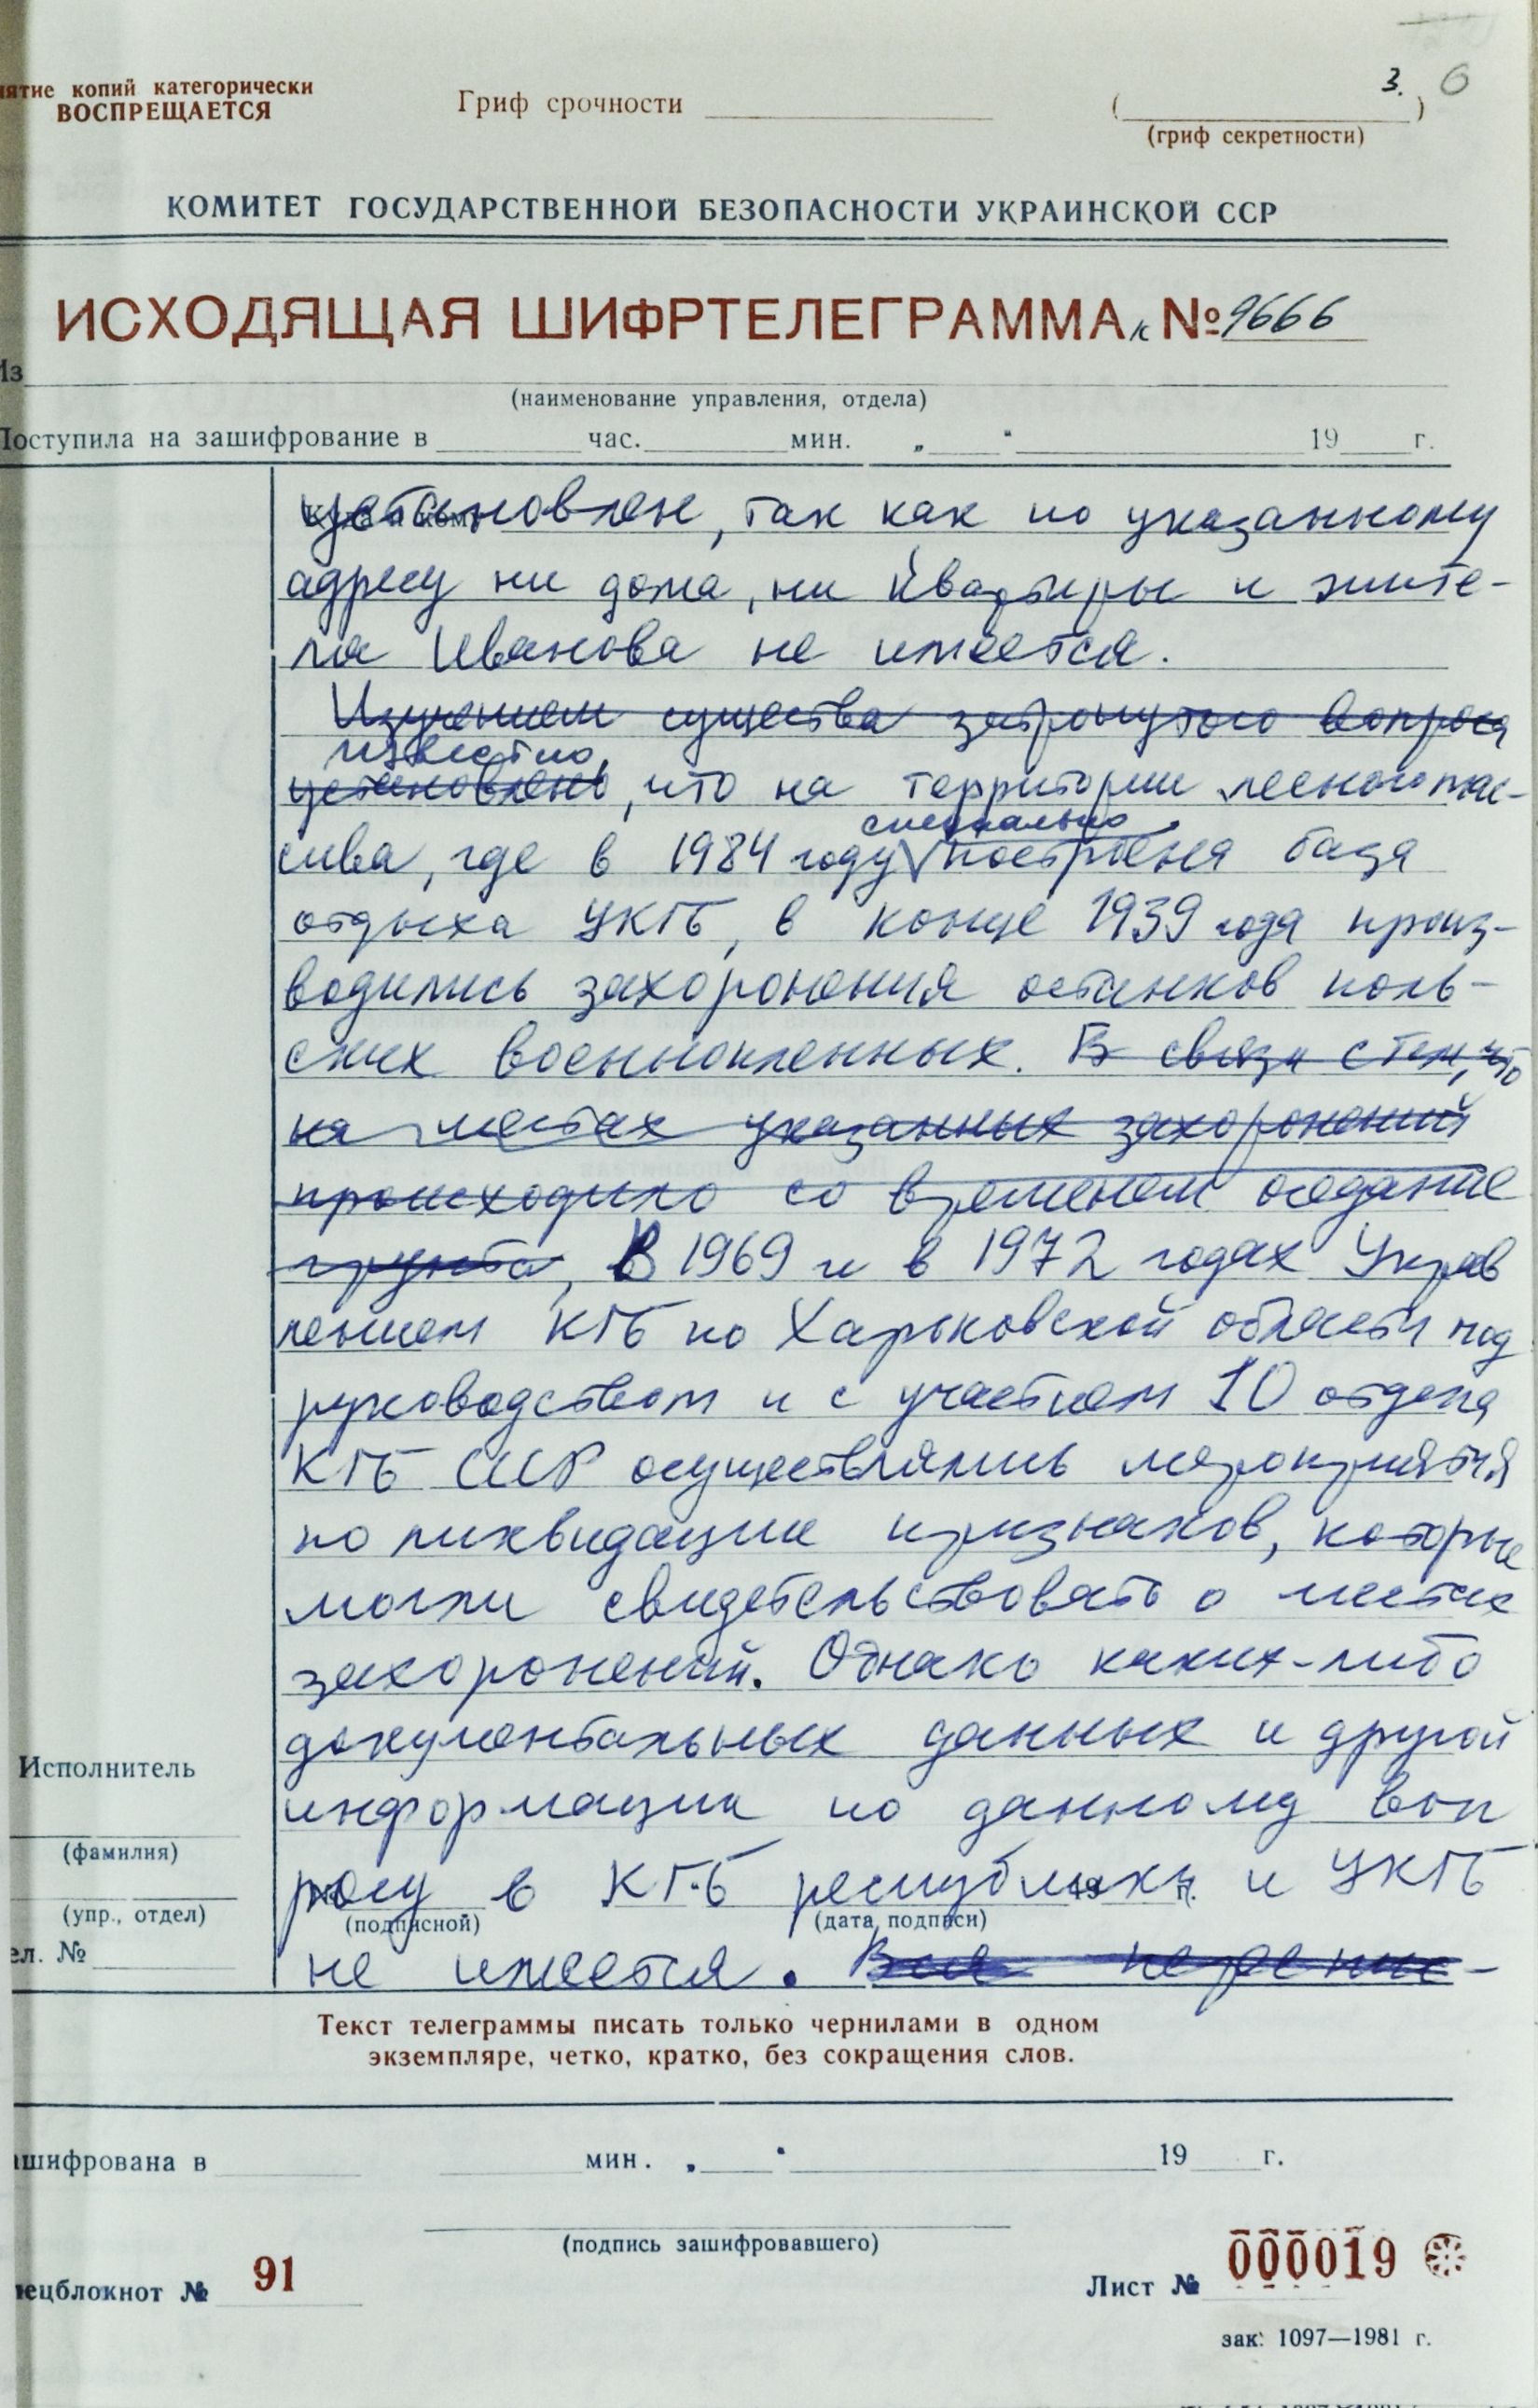 3. 6
ятие копий категорически
ВОСПРЕЩАЕТСЯ
Гриф срочности
( )
(гриф секретности)
КОМИТЕТ ГОСУДАРСТВЕННОЙ БЕЗОПАСНОСТИ УКРАИНСКОЙ ССР
ИСХОДЯЩАЯ ШИФРТЕЛЕГРАММА к № 9666
Из
(наименование управления, отдела)
Поступила на зашифрование в час. мин. „ “ 19 г.
Куда и кому
установлен, так как по указанному
адресу ни дома, ни квартиры и жите-
ля Иванова не имеется.
Изучением существа затронутого вопроса
известно,
установлено, что на территории лесного мас-
специально
сива, где в 1984 году построена база
отдыха УКГБ, в конце 1939 года произ-
водились захоронения останков поль-
ских военнопленных. В связи с тем, что
на местах указанных захоронений
происходило со временем оседание
грунта, В 1969 и в 1972 годах Управ
лением КГБ по Харьковской области под
руководством и с участием 10 отдела
КГБ СССР осуществлялись мероприятия
по ликвидации признаков, которые
могли свидетельствовать о местах
захоронений. Однако каких-либо
документальных данных и другой
информации по данному воп
росу в КГБ республики и УКГБ
не имеется. Вся перепис-
Исполнитель
(фамилия)
(упр., отдел)
ел. №
(подписной)
19 г.
(дата подписи)
Текст телеграммы писать только чернилами в одном
экземпляре, четко, кратко, без сокращения слов.
ашифрована в мин. „ “ 19 г.
(подпись зашифровавшего)
пецблокнот № 91
Лист № 000019
зак. 1097—1981 г.